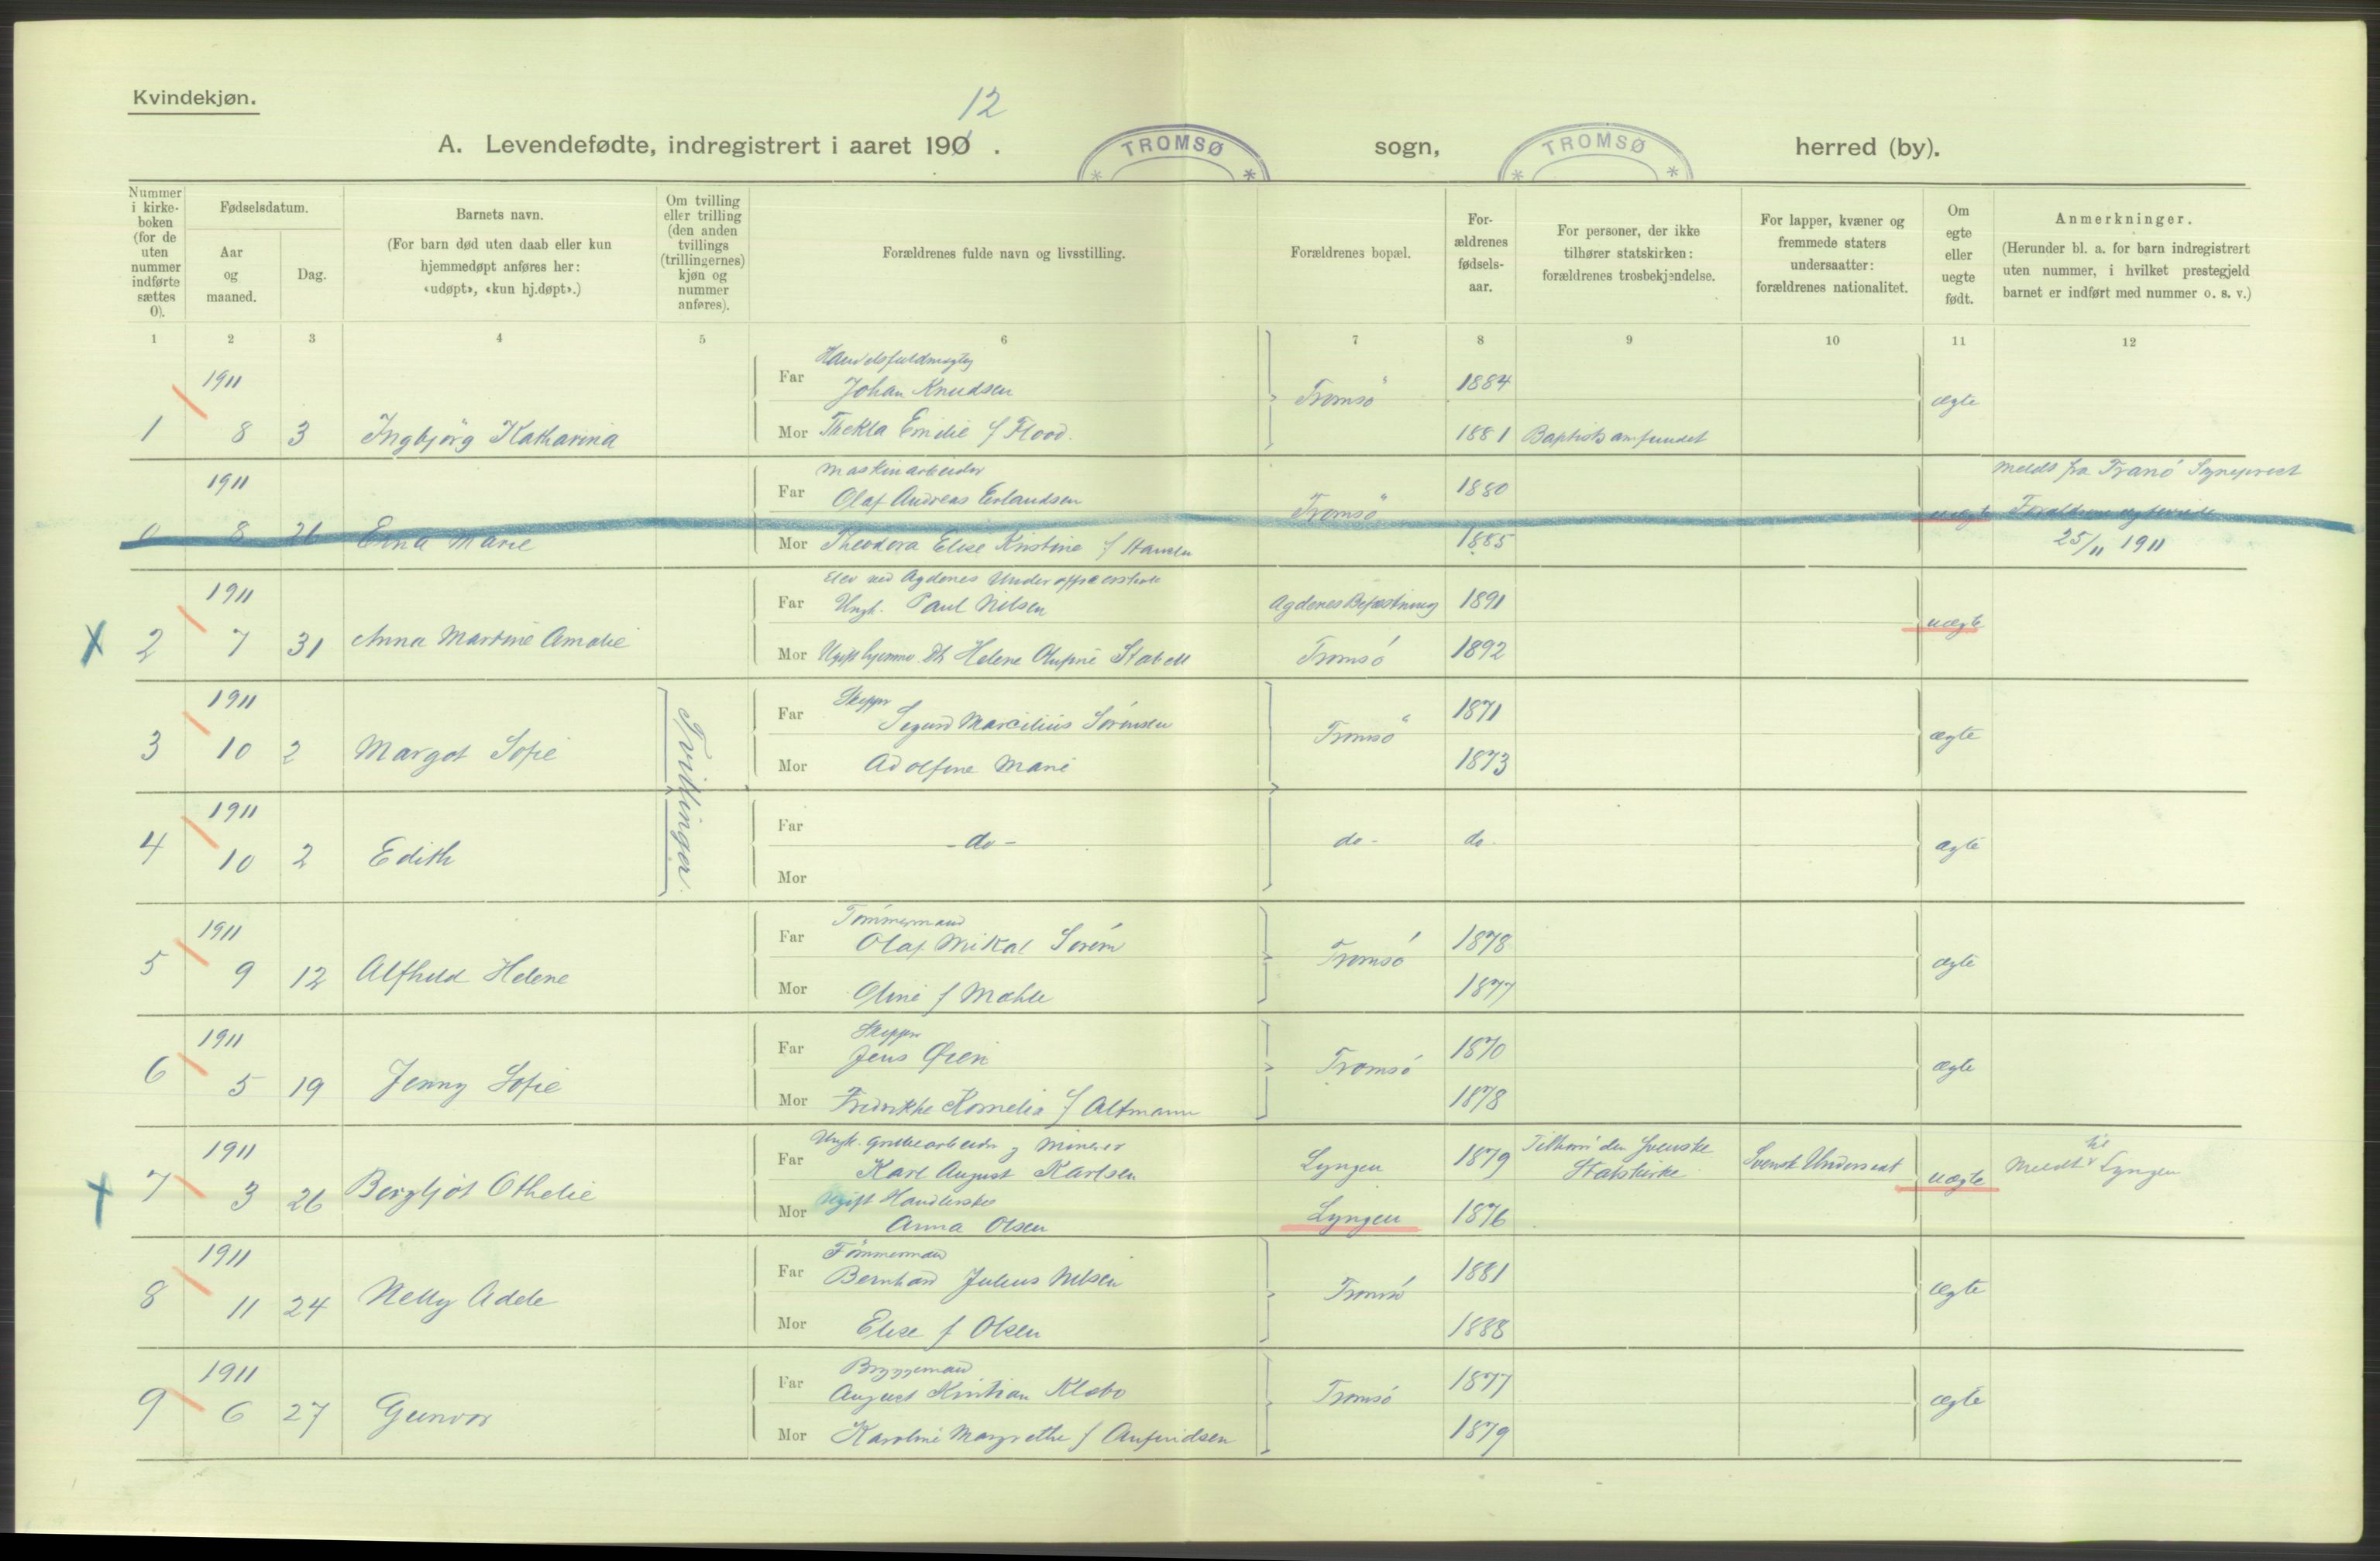 Kvindekjøn.
12
A. Levendefødte, indregistrert i aaret 190 .
TROMSØ
sogn,
TROMSØ
herred (by).
Nummer i kirke-boken (for de uten nummer indførte sættes 0).
Fødselsdatum.
Aar og maaned.
Dag.
Barnets navn.
(For barn død uten daab eller kun
hjemmedøpt anføres her:
«udøpt», «kun hj.døpt».)
Om tvilling
eller trilling
(den anden
tvillings
(trillingernes)
kjøn og
nummer
anføres).
Forældrenes fulde navn og livsstilling.
Forældrenes bopæl.
For-
ældrenes
fødsels-
aar.
For personer, der ikke
tilhører statskirken:
forældrenes trosbekjendelse.
For lapper, kvæner og
fremmede staters
undersaatter:
forældrenes nationalitet.
Om
egte
eller
uegte
født.
Anmerkninger.
(Herunder bl. a. for barn indregistrert
uten nummer, i hvilket prestegjeld
barnet er indført med nummer o. s. v.)
1 2 3 4 5 6 7 8 9 10 11 12
Handelsfuldmægtig
1911 Far Johan Knudsen Tromsö 1884 ægte
1 8 3 Ingbjörg Katharina Mor Thekla Emilie f Flood. 1881 Baptistsamfundet
Maskinarbeider
1911 Far Olaf Andreas Erlandsen Tromsö 1880 uægte Meldt fra Tranö
0 8 26 Erna Marie Mor Theodora Elise Kristine f Hansen 1885 25/11 1911
Elev ved Agdenes Underofficerskole
1911 Far Ungk. Paul Nilsen Agdenes Befæstning 1891 uægte
X 2 7 31 Anna Martine Amalie Mor Ugift hjemmev. Dtr Helene Olufine Stabell Tromsö 1892
Skipper
1911 Tvillinger Far Sigurd Marcilius Sörensen Tromsö 1871 ægte
3 10 2 Margot Sofie Mor Adolfine Marie 1873
1911 Far
4 10 2 Edith - do - do - do. ægte
Mor
Tömmermand
1911 Far Olaf Mikal Tromsö 1878 ægte
5 9 12 Alfhild Helene Mor Oline f Mæhle 1877
Skipper
1911 Far Jens Øien Tromsö 1870 ægte
6 5 19 Jenny Sofie Mor Fredrikke Kornelia f Altmann 1878
Ungk. Grubearbeider og Minerer
1911 Far Karl August Karlsen Lyngen 1879 Tilhörer den Svenske Statskirke Svensk Undersaat uægte Meldt til Lyngen
X 7 3 26 Bergljot Othelie Mor Ugift Handlerske
Anna Olsen Lyngen 1876
Tömmermand
1911 Far Bernhard Julius Nilsen Tromsö 1881 ægte
8 11 24 Nelly Adele Mor Elise f Olsen 1888
Bryggemand
1911 Far August Kristian Klæbo Tromsö 1877 ægte
9 6 27 Gunvor Mor Karoline Margrethe f Anfindsen 1879